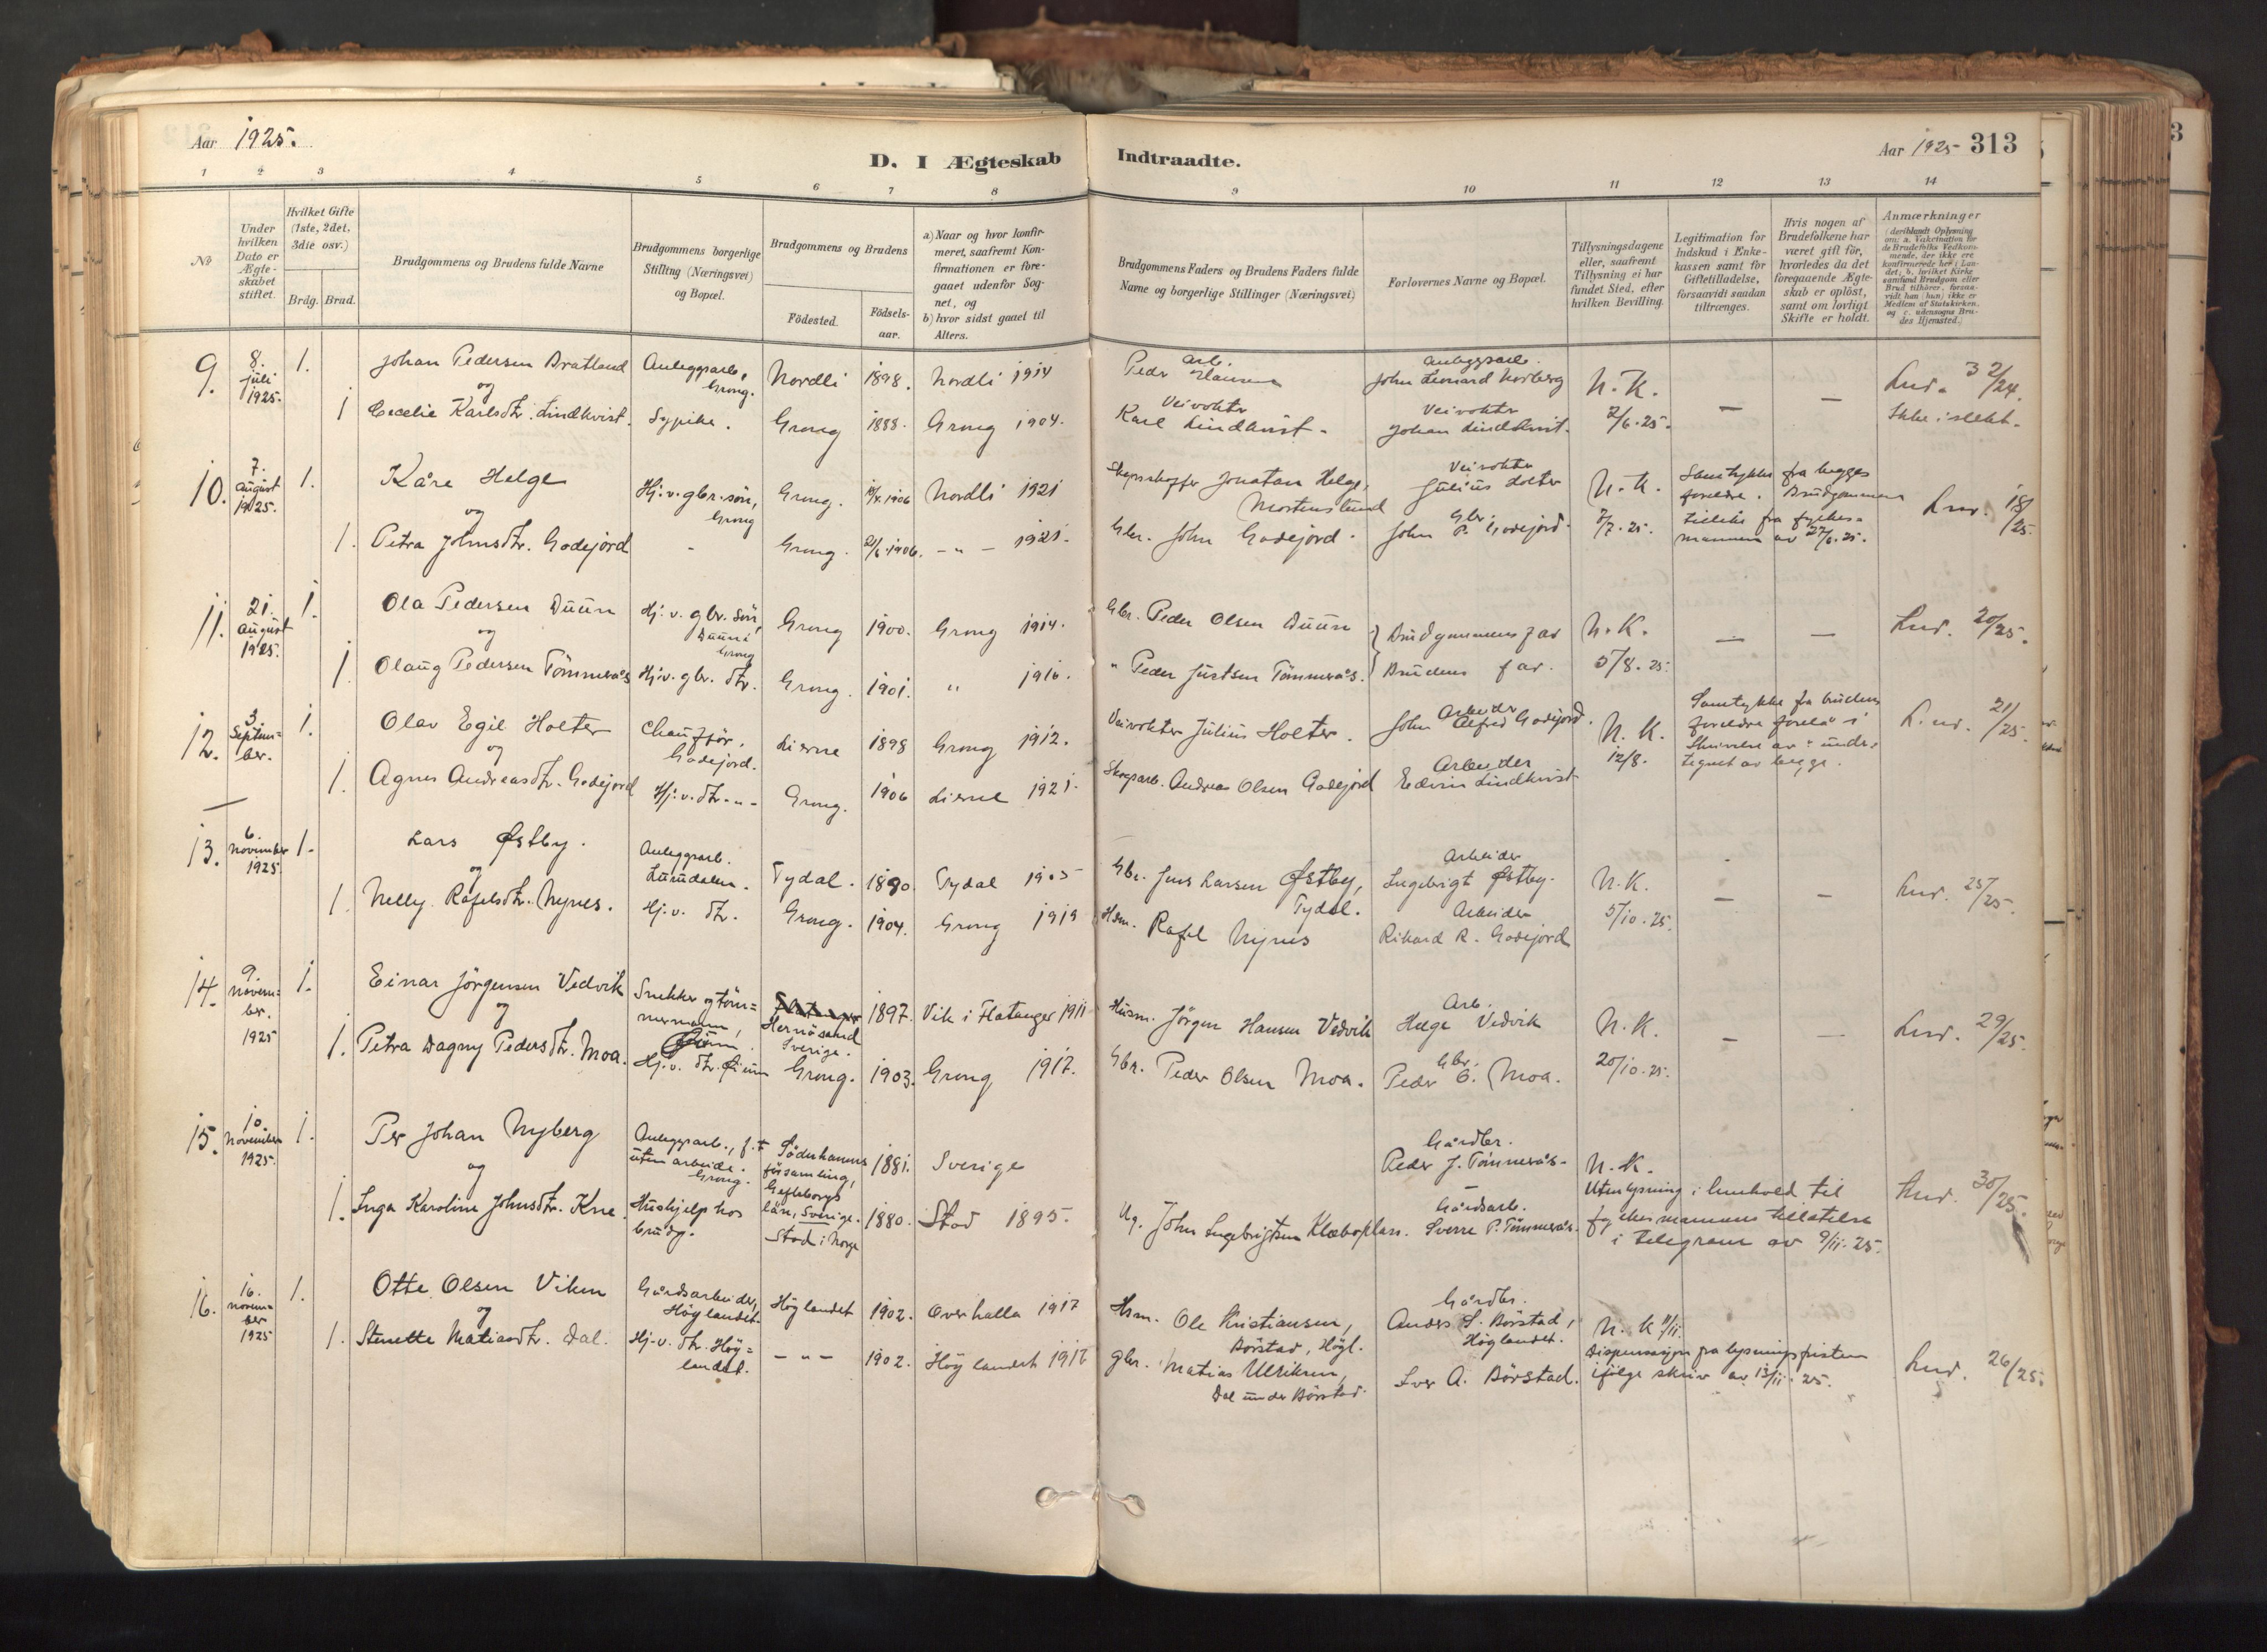 Aar 1925.
D. I Ægteskab
Indtraadte.
Aar 1925 313
1 2 3 4 5 6 7 8 9 10 11 12 13 14
No
Under hvilken Dato er Ægte-skabet stiftet.
Hvilket Gifte (1ste, 2det, 3die osv.)
Brdg. Brud.
Brudgommens og Brudens fulde Navne
Brudgommens borgerlige Stilling (Næringsvei) og Bopæl.
Brudgommens og Brudens
Födested.
Födsels-aar.
a) Naar og hvor konfir-meret, saafremt Kon-firmationen er fore-gaaet udenfor Sog-net, og
b) hvor sidst gaaet til Alters.
Brudgommens Faders og Brudens Faders fulde Navne og borgerlige Stillinger (Næringsvei)
Forlovernes Navne og Bopæl.
Tillysningsdagene eller, saafremt Tillysning ei har fundet Sted, efter hvilken Bevilling.
Legitimation for Indskud i Enke-kassen samt for Giftetilladelse, forsaavidt saadan tiltrænges.
Hvis nogen af Brudefolkene har været gift för, hvorledes da det foregaaende Ægte-skab er oplöst, samt om lovligt Skifte er holdt.
Anmærkninger (deriblandt Oplysning om: a. Vakcination for de Brudefolks Vedkom-mende, der ikke ere konfirmerede her i Lan-det; b. hvilket Kirke samfund Brudgom eller Brud tilhörer, forsaa-vidt han (hun) ikke er Medlem af Statskirken, og c. udensogns Bru-des Hjemsted.)
9. 8. juli 1925. 1. Johan Pedersen Bratland Anleggsarb., Grong. Nordli 1898. Nordli 1914 arb. Peder Hansen anleggsarb. John Leonard Norberg N.K. 2/6.25. — — Lnr. 32/24. Ikke i slekt.
og
1 Cecelie Karlsdtr. Lindkvist. Sypike. Grong 1888. Grong 1904. Veivokter Karl Lindkvist. Veivokter Johan Lindkvist.
10. 7. august 1925. 1. Kåre Helge Hj.v. gbr. sön, Grong Grong. 1906 Nordli 1921 Jonatan Helge, Mortenslund Veivokter Julius Holter N.K. 7/7.25. Samtykke fra begges foreldre. Brudgommen tillike fra fylkes-mannen av 27/6.25. Lnr. 18/25.
og
1. Petra Johnsdtr. Godejord - Grong. 1906. -"- 1921. Gbr. John Godejord. Gbr. John P. Godejord.
11. 21. august 1925. 1. Ola Pedersen Duun Hj.v. gbr. sön, Duun i Grong Grong 1900. Grong 1914. Gbr. Peder Olsen Duun Brudgommens far N.K. 5/8.25. — — Lnr. 20/25.
og
1. Olaug Pedersen Tömmerås Hj.v. gbr. dtr. Grong. 1901. " 1916. " Peder Justsen Tömmerås. Brudens far.
12. 3. Septem-ber. 1. Olav Egil Holter Chaufför, Godejord. Lierne 1898 Grong 1912. Veivokter Julius Holter. Arbeider John Alfred Godejord. N.K. 12/8. Samtykke fra brudens foreldre forelå i Skrivelse av : under-tegnet av begge. L.nr. 21/25.
og
1. Agnes Andreasdtr. Godejord Hj.v. dtr. -"- Grong. 1906 Lierne 1921. Skogsarb. Andreas Olsen Godejord Arbeider Edvin Lindkvist
13. 6. november 1925. 1. Lars Østby. Anleggsarb. Tydal. 1890. Tydal 1905 Gbr. Jens Larsen Østby, Tydal. Arbeider Ingebrigt Østby. N.K. 5/10.25. — — Lnr. 25/25.
og
1. Nelly Rafelsdtr. Nynes. Hj.v. dtr. Grong. 1904. Grong 1919 Hsm. Rafel Nynes Arbeider Rikard R. Godejord
14. 9. novem-ber. 1925 1. Einar Jörgensen Vedvik Snekker og töm-mermann, Hernösand Sverige. 1897. Vik i Flatanger 1911 Husm. Jörgen Hansen Vedvik Arb. Helge Vedvik N.K. 20/10.25. — — Lnr. 29/25.
og
1. Petra Dagny Pedersdtr. Moa. Hj.v. dtr. Grong. 1903. Grong 1917. Gbr. Peder Olsen Moa. Gbr. Peder O. Moa.
15. 10. november 1925. 1. Per Johan Nyberg Anleggsarb., f.t. uten arbeide. Grong. Söderhamns församling, Gefleborgs län, Sverige. 1881. Sverige Gårdbr. Peder J. Tömmerås. N.K. Utenlysning i henhold til fylkesmannens tillatelse i telegram av 9/11.25. Lnr. 30/25.
og
1. Inga Karoline Johnsdtr. Kne. Hushjelp hos brudg. Stod i Norge 1880. Stod 1895. Ug. John Ingebrigtsen Klæboplass. Gårdsarb. Sverre P. Tömmerås.
16. 16. novem-ber 1925 1. Otte Olsen Viken Gårdsarbeider, Höglandet. Höglandet 1902. Overhalla 1917 Hsm. Ole Kristiansen, Börstad, Högl. Gårdbr. Anders S. Börstad, Höglandet. N.K. 11/11. Dispensasjon fra lysningsfristen ifölge skriv av 13/11.25. Lnr. 26/25.
og
1. Stenette Matiasdtr. Dal. Hj.v. dtr. Hög-landet. -"- 1902. Höglandet 1916 gbr. Matias Ulriksen, Dal under Börstad. Iver A. Börstad.